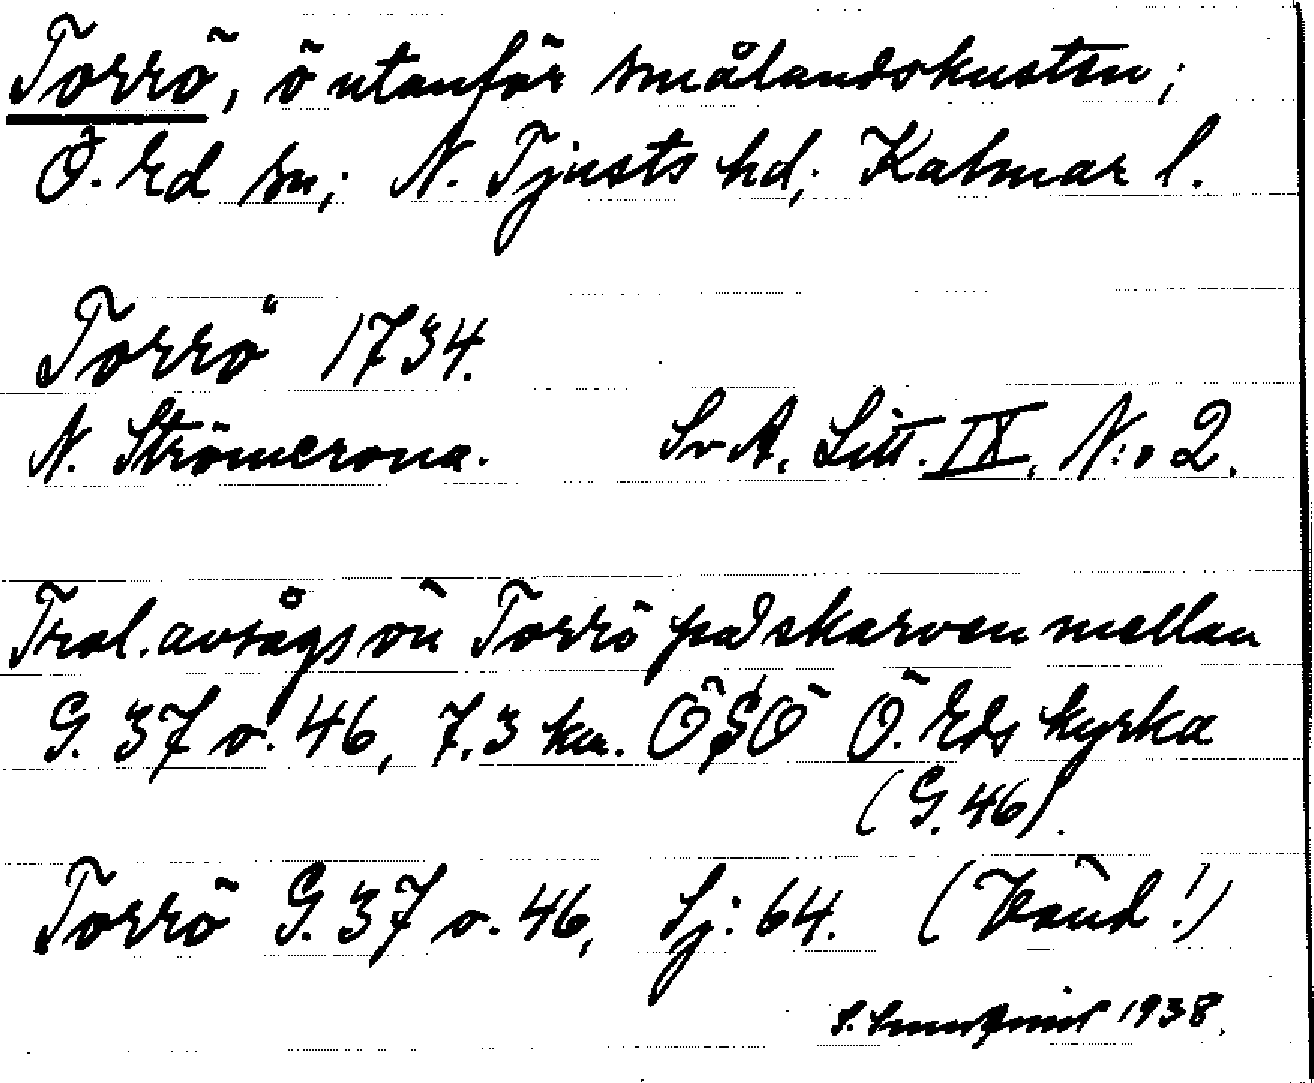 Torrö, ö utanför smålandskusten;
Ö. Ed sn; N. Tjusts hd; Kalmar l.
Torrö 1734.
N. Strömcrona. SvA. Litt. IX. N:o 2.
Trol. avságs ön Torrö på skarven mellan
G. 37 o. 46, 7.3 km. ÖSÖ Ö. Eds kyrka
(G. 46).
Torrö G. 37 o. 46, Sj: 64. (Vänd!)
1938.